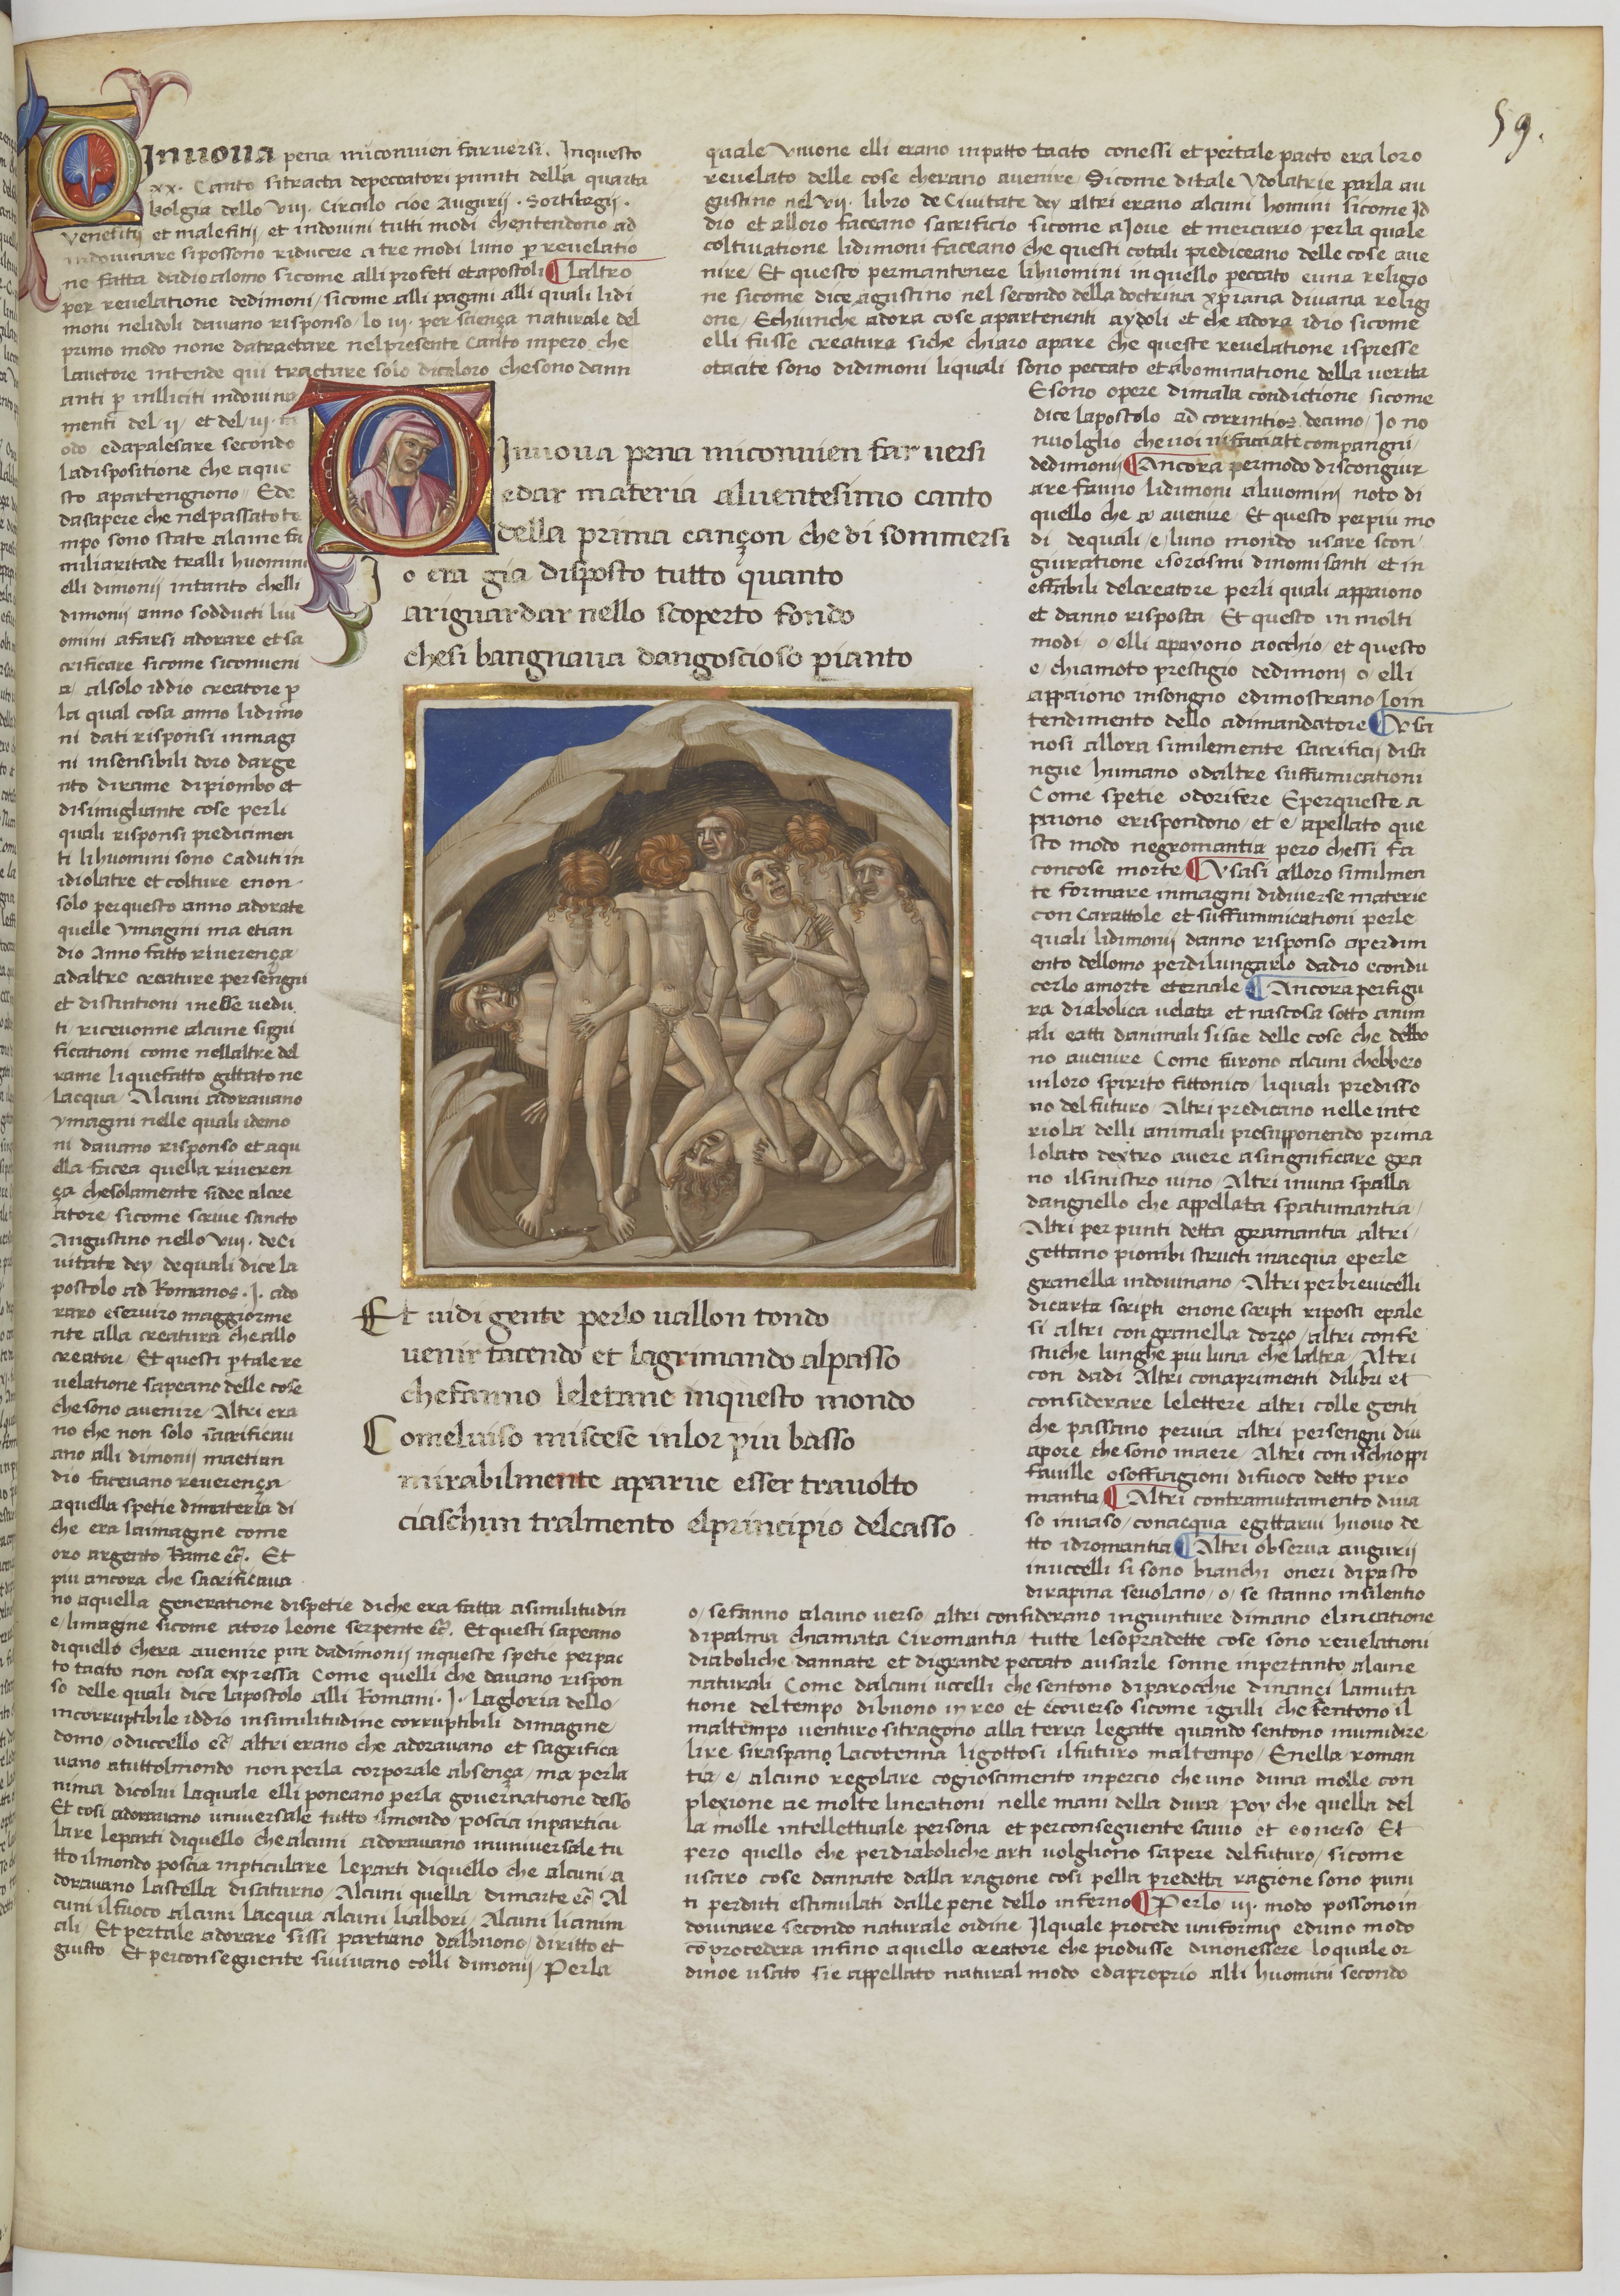 59.
Innova pena miconvien far versi. Inquesto
xx. Canto sitracta depeccatori puniti della quarta
bolgia dello viii. Circulo cioe Augurij. Sortilegij.
venefitij et malefitij et indovini tutti modi chentendono ad
indovinare sipossono riducere atre modi luno per revelatio
ne fatta dadio alomo sicome alli profeti et apostoli ¶ Laltro
per revelatione dedimoni / sicome alli pagani alli quali lidi
moni nelidoli davano risponso / lo iii. per sciença naturale del
primo modo none datractare nelpresente Canto inpero che
lauctore intende qui tractare solo dicoloro chesono dann
anti per inlliciti indovina
menti del ii / et del / iii. m
odo edapalesare secondo
ladispositione che aque
sto apartengnono / Ede
dasapere che nelpassato te
mpo sono state alcune fa
miliaritade tralli huomini
elli dimonij intanto chelli
dimonij anno sodducti liu
omini afarsi adorare et sa
crificare sicome siconveni
a / alsolo iddio creatore p
la qual cosa anno lidimo
ni dati risponsi inmagi
ni insensibili doro darge
nto dirame dipiombo et
disimigliante cose perli
quali risponsi predicimen
ti lihuomini sono caduti in
idiolatre et colture enon
solo perquesto anno adorate
quelle ymagini ma etian
dio Anno fatto riverença
adaltre creature persengni
et distintioni inesse vedu
ti / ricevonne alcune signi
ficationi come nellaltre del
rame liquefatto gittato ne
lacqua / Alcuni adoravano
ymagini nelle quali idemo
ni davano risponso et aqu
ella facea quella riveren
ça chesolamente sidee alcre
atore / sicome scrive sancto
Augustino nello viii. deCi
vitate dey / dequali dice la
postolo ad Romanos. I. ado
raro eserviro maggiorme
nte alla creatura che allo
creatore / Et questi per tale re
velatione sapeano delle cose
chesono avenire / Altri era
no che non solo sacrificav
ano alli dimonij maetian
dio facevano reverença
aquella spetie dimateria di
che era laimagine come
oro argento / Rame ec. Et
piu ancora che sacrificava
no aquella generatione dispetie diche era fatta asimilitudin
e / limagine sicome atoro leone serpente ec. Et questi sapeano
diquello chera avenire pur dadimonij inqueste spetie perpac
to tacito non cosa expressa Come quelli che davano rispon
so delle quali dice lapostolo alli Romani. I. Lagloria dello
incorruptibile iddio insimilitudine corruptibili dimagine
domo / oduccello ec altri erano che adoravano et sagrifica
vano atuttolmondo non perla corporale absença / ma perla
nima dicolui laquale elli poneano perla governatione desso
Et cosi adoravano universale tutto ilmondo / poscia inparticu
lare leparti diquello che alcuni adoravano inuniversale tu
tto ilmondo poscia inpticulare leparti diquello che alcuni a
doravano Lastella disaturno / Alcuni quella dimarte ec Al
cuni ilfuoco alcuni lacqua alcuni lialbori / Alcuni lianim
ali / Et pertale adorare sissi partiano dalbuono / diritto et
giusto / Et perconseguente sunivano colli dimonij / Perla
Innova pena miconvien far versi
edar materia alventesimo canto
della prima cançon che di sommersi
Io era gia disposto tutto quanto
ariguardar nello scoperto fondo
chesi bangnava dangoscioso pianto
Et vidi gente perlo vallon tondo
venir tacendo et lagrimando alpasso
chefanno leletane inquesto mondo
Comelviso miscese inlor piu basso
mirabilmente aparve esser travolto
ciaschun tralmento elprincipio delcasso
quale Unione elli erano inpatto tacito conessi et pertale pacto era loro
revelato delle cose cherano avenire / Sicome ditale ydolatrie parla au
gustino nel vii. libro de Civitate dey altri erano alcuni homini sicome Id
dio et alloro faceano sacrificio sicome aJove et mercurio / perla quale
coltivatione lidimoni faceano che questi cotali prediceano delle cose ave
nire / Et questo permantenere lihuomini inquello peccato euna religio
ne sicome dice agustino nel secondo della doctrina xpriana divana relig
one / Echiunche adora cose apartenenti aydoli et che adora idio sicome
elli fusse creatura siche chiaro apare che queste revelatione ispresse
otacite sono didimoni liquali sono peccato et abominatione della verita
Esono opere dimala condictione / sicome
dice lapostolo ad corrintios decimo / Io no
nvolglio che voi vi facciate compangni
dedimonij ¶ Ancora permodo discongiur
are fanno lidimoni alivomini noto di
quello che e avenire / Et questo perpiu mo
di dequali / e / luno mondo usare scon
giuratione esorcismi dinomi santi et in
effabili delcreatore perli quali appaiono
et danno risposta / Et questo in molti
modi / o / elli apayono aocchio / et questo
e / chiamoto prestigio dedimoni o / elli
appaiono insongnio edimostrano loin
tendimento dello adimandatore ¶ Usa
nosi allora similemente sacrificij disa
ngue humano odaltre suffumicationi
Come spetie odorifere Eperqueste a
paiono erispondono / et e / apellato que
sto modo negromantia pero chessi fa
concose morte ¶ Usasi alloro similmen
te formare inmagini didiverse materie
con Carattole et suffummicationi perle
quali lidimonij danno risponso aperdim
ento dellomo perdilungarlo dadio econdu
cerlo amorte eternale ¶ Ancora perfigu
ra diabolica velata et nascosa sotto anim
ali eatti danimali sisae delle cose che debbo
no avenire Come furono alcuni chebbero
inloro spirito fittonico / liquali predisso
no del futuro / Altri predicano nelle inte
riola delli animali presupponendo prima
lolato dextro avere asingnificare gra
no ilsinistro vino / Altri inuna spalla
dangniello che appellata spatumantia /
Altri per punti detta gramantia altri
gettano piombi structi inacqua eperle
granella indovinano / Altri perbrevicelli
dicarta scripti enone scripti riposti epale
si altri con granella dorço / altri confe
stuche lunghe piu luna che laltra / Altri
con dadi Altri conaprimenti dilibri et
considerare lelettere altri colle genti
che passano pervia altri persengni diu
apore che sono inaere Altri con ischioppi
faville osofficagioni difuoco detto piro
mantia ¶ Altri contramutamento diva
so invaso / conacqua egittarvi huovo de
tto idromantia ¶ Altri observa augurij
inuccelli si sono bianchi oneri dipasto
dirapina sevolano / o / se stanno insilentio
o / sefanno alcuno verso / altri considerano ingiunture dimano elineatione
dipalma chiamata Ciromantia / tutte lesopradette cose sono revelationi
diaboliche dannate et digrande peccato ausarle sonne inpertanto alcune
naturali Come dalcuni uccelli che sentono diparocchie dinanci lamuta
tione deltempo dibuono in reo et ecoverso sicome igalli che sentono il
maltempo venturo sitragono alla terra legatte quando sentono inumidire
lire siraspano lacotenna ligottosi ilfuturo maltempo / Enella roman
tia / e / alcuno regolare cognoscimento inpercio che uno duna molle con
plexione ae molte lineationi nelle mani della dura / Poy che quella del
la molle intellettuale persona et perconseguente savio et converso / Et
pero quello che perdiaboliche arti volgliono sapere delfuturo / sicome
usaro cose dannate dalla ragione cosi pella predetta ragione sono puni
ti perduti estimulati dalle pene dello inferno ¶ Perlo iij. modo possono in
dovinare secondo naturale ordine Ilquale procede uniformis eduno modo
co procedera infino aquello creatore che produsse dinonessere loquale or
dinoe usato sie appellato natural modo edaproprio alli huomini secondo